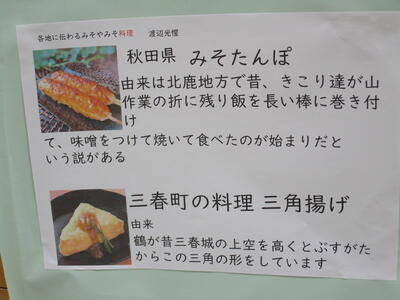 各地に伝わるみそやみそ料理 渡辺光惺
秋田県 みそたんぽ
由来は北鹿地方で昔、きこり達が山
作業の折に残り飯を長い棒に巻き付
け
て、味噌をつけて焼いて食べたのが始まりだと
いう説がある
三春町の料理 三角揚げ
由来
鶴が昔三春城の上空を高くとぶすがた
からこの三角の形をしています